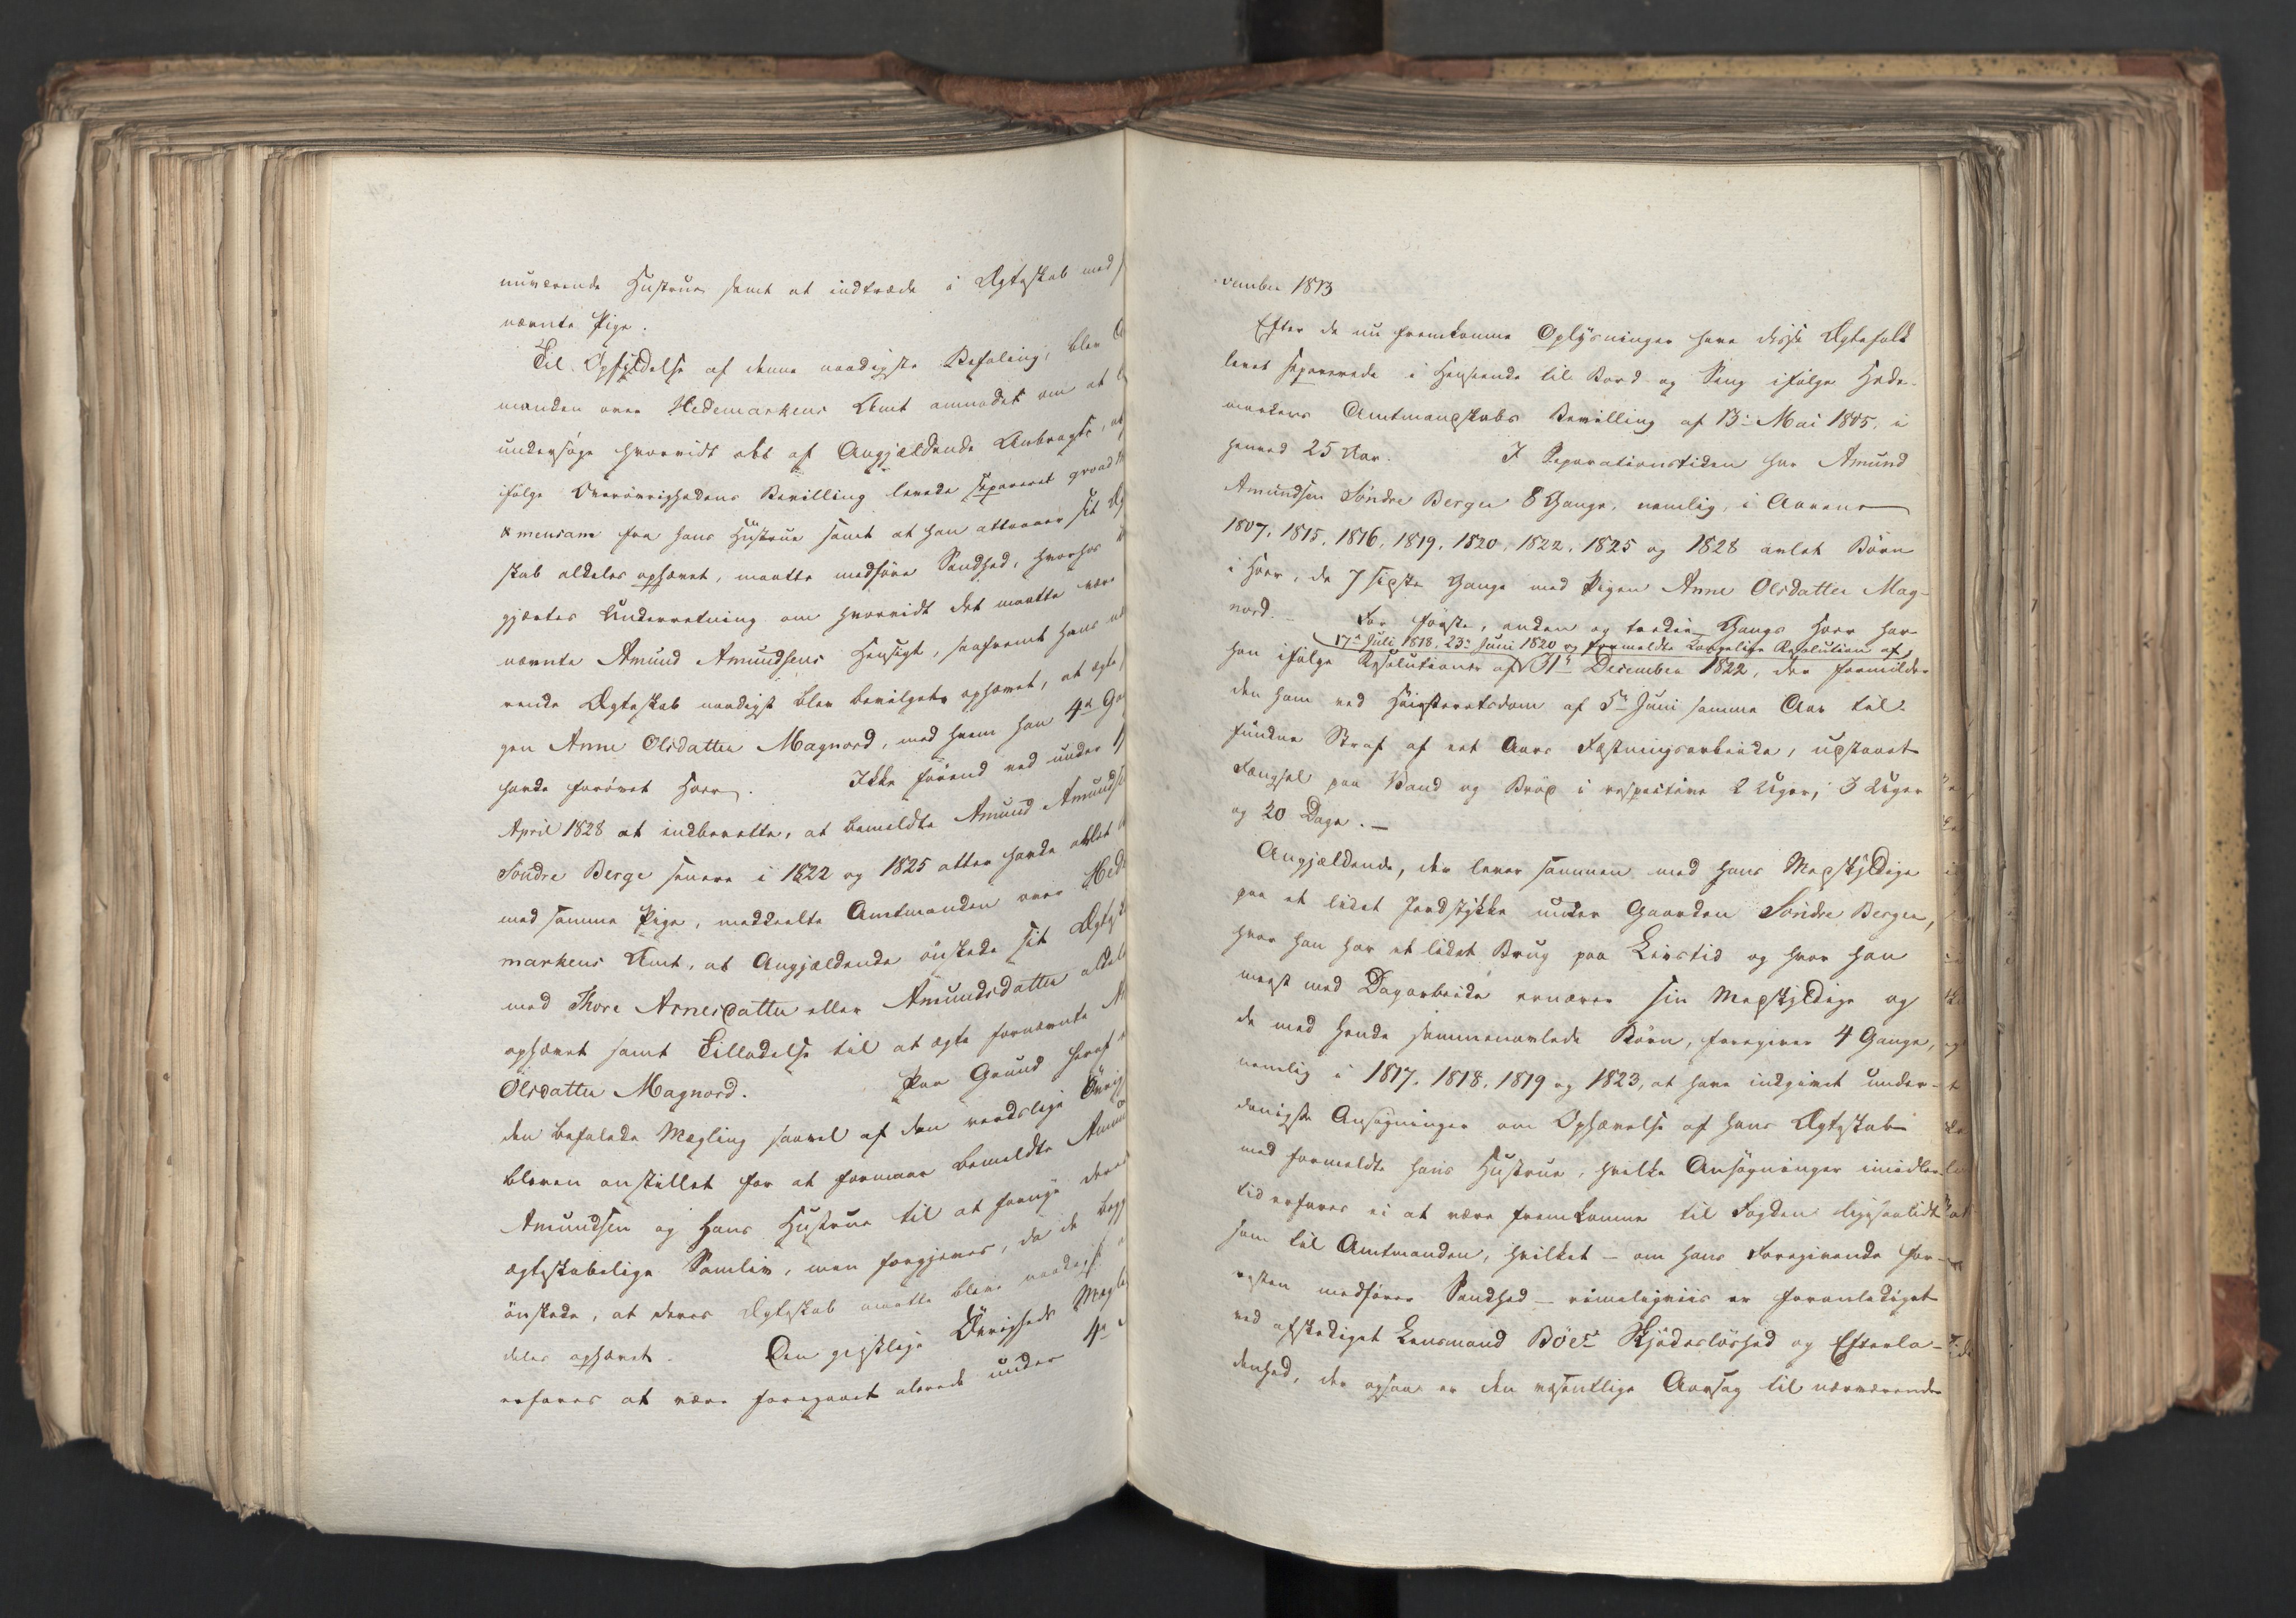 nuværende Hustrue samt at indtræde i Ægteskab med
nævnte Pige.
Til Opfyldelse af denne naadigste Befaling, blev
manden over Hedemarkens Amt anmodet om at
undersøge hvorvidt det af Angjældende Anbragte, at
ifølge Overøvrighedens Bevilling levede separeret qvoad
& mensam fra hans Hustrue samt at han attraaer sit
skab aldeles ophævet, maatte medføre Sandhed, hvorhos
gjærtes Underretning om hvorvidt det maatte være
nævnte Amund Amundsens Hensigt, saafremt hans
rende Ægteskab naadigst blev bevilget ophævet, at ægte
gen Anne Olsdatter Magnord, med hvem han 4de
havde forøvet Hoer. Ikke førend ved under
April 1828 at indberette, at bemeldte Amund Amunds
Søndre Berge senere i 1822 og 1825 atter havde avlet
med samme Pige, meddeelte Amtmanden over Hede
markens Amt, at Angjældende ønskede sit Ægtesk
med Thore Arnesdatter eller Amundsdatter aldel
ophævet samt Tilladelse til at ægte fornævnte
Olsdatter Magnord. Paa Grund heraf
den befalede Mægling saavel af den verdslige Øvrig
bleven anstillet for at formaae bemeldte Amun
Amundsen og hans Hustrue til at fornye deres
ægteskabelige Samliv, men forgjæves, da de begge
ønskede, at deres Ægteskab maatte blive naadigst
deles ophævet. Den geistlige Øvrigheds Mægl
erfares at være foregaaet allerede under 4de
vember 1813
Efter de nu fremkomne Oplysninger have disse Ægtefolk
levet separerede i Henseende til Bord og Seng ifølge Hede-
markens Amtmandskabs Bevilling af 13de Mai 1805, i
henved 25 Aar. I Separationstiden har Amund
Amundsen Søndre Bergen 8 Gange, nemlig i Aarene
1807, 1815, 1816, 1819, 1820, 1822, 1825 og 1828 avlet Børn
i Hoer, de 7 sidste Gange med Pigen Anne Olsdatter Mag-
nord. – For første, anden og tredie Gangs Hoer har
17de Juli 1818, 23de Juni 1820 og formeldte Kongelige Resolution af
han ifølge Resolutioner af 31te December 1822, der formilde-
den ham ved Høiesteretsdom af 5te Juni samme Aar til-
fundne Straf af eet Aars Fæstningsarbeide, udstaaet
Fængsel paa Vand og Brød i respective 2 Uger, 3 Uger
og 20 Dage. –
Angjældende, der lever sammen med hans Medskyldige
paa et lidet Jordstykke under Gaarden Søndre Bergen,
hvor han har et lidet Brug paa Livstid og hvor han
meest med Dagarbeide ernærer sin Medskyldige og
de med hende sammenavlede Børn, foregiver 4 Gange,
nemlig i 1817, 1818, 1819 og 1823, at have indgivet under-
danigste Ansøgninger om Ophævelse af hans Ægteskab
med formeldte hans Hustrue, hvilke Ansøgninger imidler-
tid erfares ei at være fremkomne til Fogden ligesaalidt
som til Amtmanden, hvilket – om hans Foregivende for-
resten medfører Sandhed – rimeligviis er foranlediget
ved afskediget Lensmand Böes Skjødesløshed og Efterla-
denhed, der ogsaa er den væsentlige Aarsag til nærværende